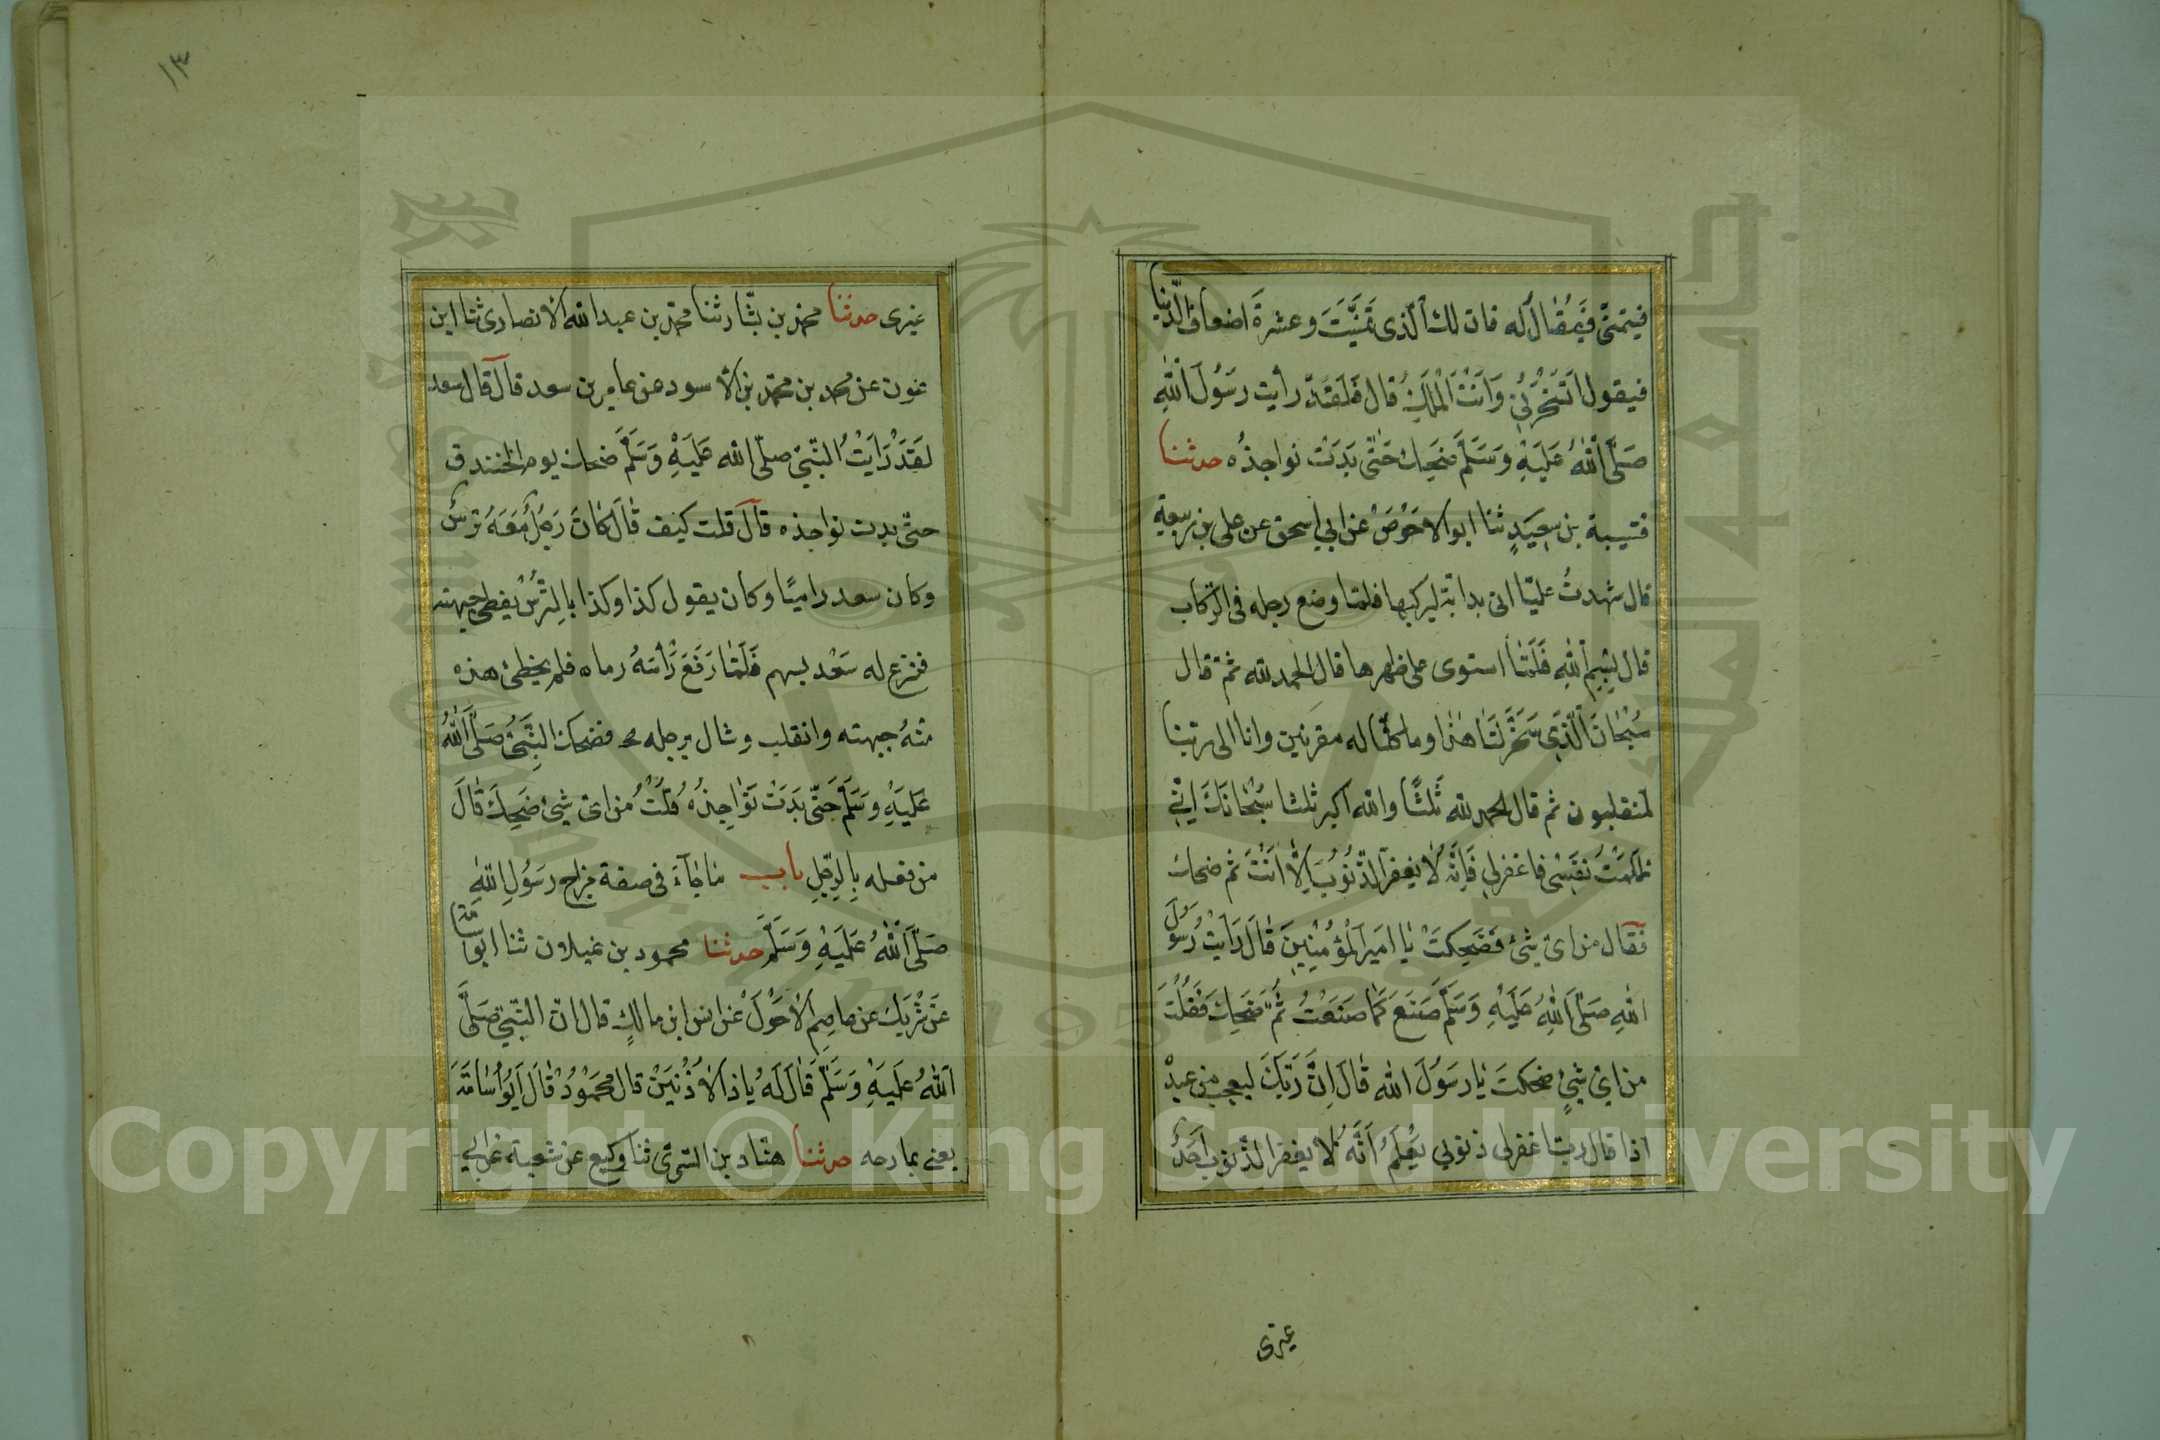 ١٣
فيتمنّى فَيُقَالُ له فان لك الّذى تَمَنَّيْتَ وعشرةَ اضعاف الدّنيا
فيقول اَتَسْخَرُ بِى وَاَنْتَ الْمَلِكُ قال فَلَقَدْ رأيت رسُولَ اللهِ
صَلَّى اللهُ عَلَيْهِ وَسَلَّمَ ضَحِكَ حَتّٰى بَدَتْ نواجذُه حدثنا
قتيبة بن سعِيدٍ ثنا ابو الاحْوَصْ عن ابي اسحق عن على بن ربيعة
قال شهدتُ عليّا اتى بدابّة ليركبها فلمّا وضع رجله فى الرّكاب
قال بِسْمِ اللهِ فَلَمَّا استوى على ظهرها قال الحمد لله ثمّ قال
سُبْحَانَ الَّذِى سَخَّرَ لَنَا هٰذا وما كنّا له مقرنين وانا الى ربّنا
لمنقلبون ثم قال الحمد لله ثَلٰثًا والله اكبر ثلثا سُبْحَانَكَ اِنِّى
ظَلَمْتُ نَفْسِى فاغفرلى فَاِنَّهُ لَا يغفر الذّنُوبَ اِلّا اَنْتَ ثم ضحك
فقال من اىّ شئ ضَحِكْتَ يَا امِيرَ الْمُؤْمِنِينَ قَالَ رَاَيْتُ رَسُولَ
اللهِ صَلَّى اللهُ عَلَيْهِ وَسَلَّمَ صَنَعَ كَمَا صَنَعْتُ ثُمَّ ضَحِكَ فَقُلْتُ
من اىّ شئٍ ضحكتَ يَا رسُولَ الله قَالَ اِنَّ رَبَّكَ ليعجب من عبدْ
اذا قال ربّ اغفرلى ذنوبي يَعْلَمُ اَنَّهُ لَا يغفر الذّنوب اَحَدٌ
غيرى
غيرى حدثنا محمّد بن بشّار ثنا محمّد بن عبد الله الانصارى ثنا ابن
عون عن محمد بن محمّد بن الاسود عن عامر بن سعد قال قال سعد
لقَدْ رَاَيْتُ النّبيّ صلّى الله عَلَيْهِ وَسَلَّمَ ضحك يوم الخندق
حتّى بدت نواجذه قال قلت كيف قَالَ كَانَ رَجُلٌ مَعَهُ ترسٌ
وكان سعد راميًا وكان يقول كذا وكذا بالتِرْسْ يغطى جبهته
فنزع له سَعْد بسهم فَلَمَّا رَفَعَ رَأسَهُ رماه فلم يخطئ هذه
منهُ جبهته وانقلب وشال برجله فضحك النّبِىُّ صَلَّى اللهُ
عَلَيْهِ وسَلَّمَ حَتّى بَدَتْ نَوَاجِذُهُ قُلْتُ من اىّ شئ ضَحِكَ قَالَ
من فعله بِالرِّجُلِ باب مَا جَآءَ فى صفة مزاح رسُولِ اللهِ
صَلَّى اللهُ عَلَيْهِ وَسَلَّمَ حدثنا محمود بن غيلان ثنا ابو اسامة
عَنْ شَرِيْك عن عاصِم الْاحْوَلْ عن انس ابن مالكٍ قال انّ النّبيّ صَلَّى
اللهُ عَلَيْهِ وَسَلَّمَ قَالَ لَهُ يا ذا الاُذُنَيْنْ قال مَحْمُودْ قَالَ اَبُو اُسَامَةَ
يعنى يمازحه حدثنا هنّاد بن السّرىّ ثنا وكيع عن شعبة عن ابي
Copyright © King Saud University